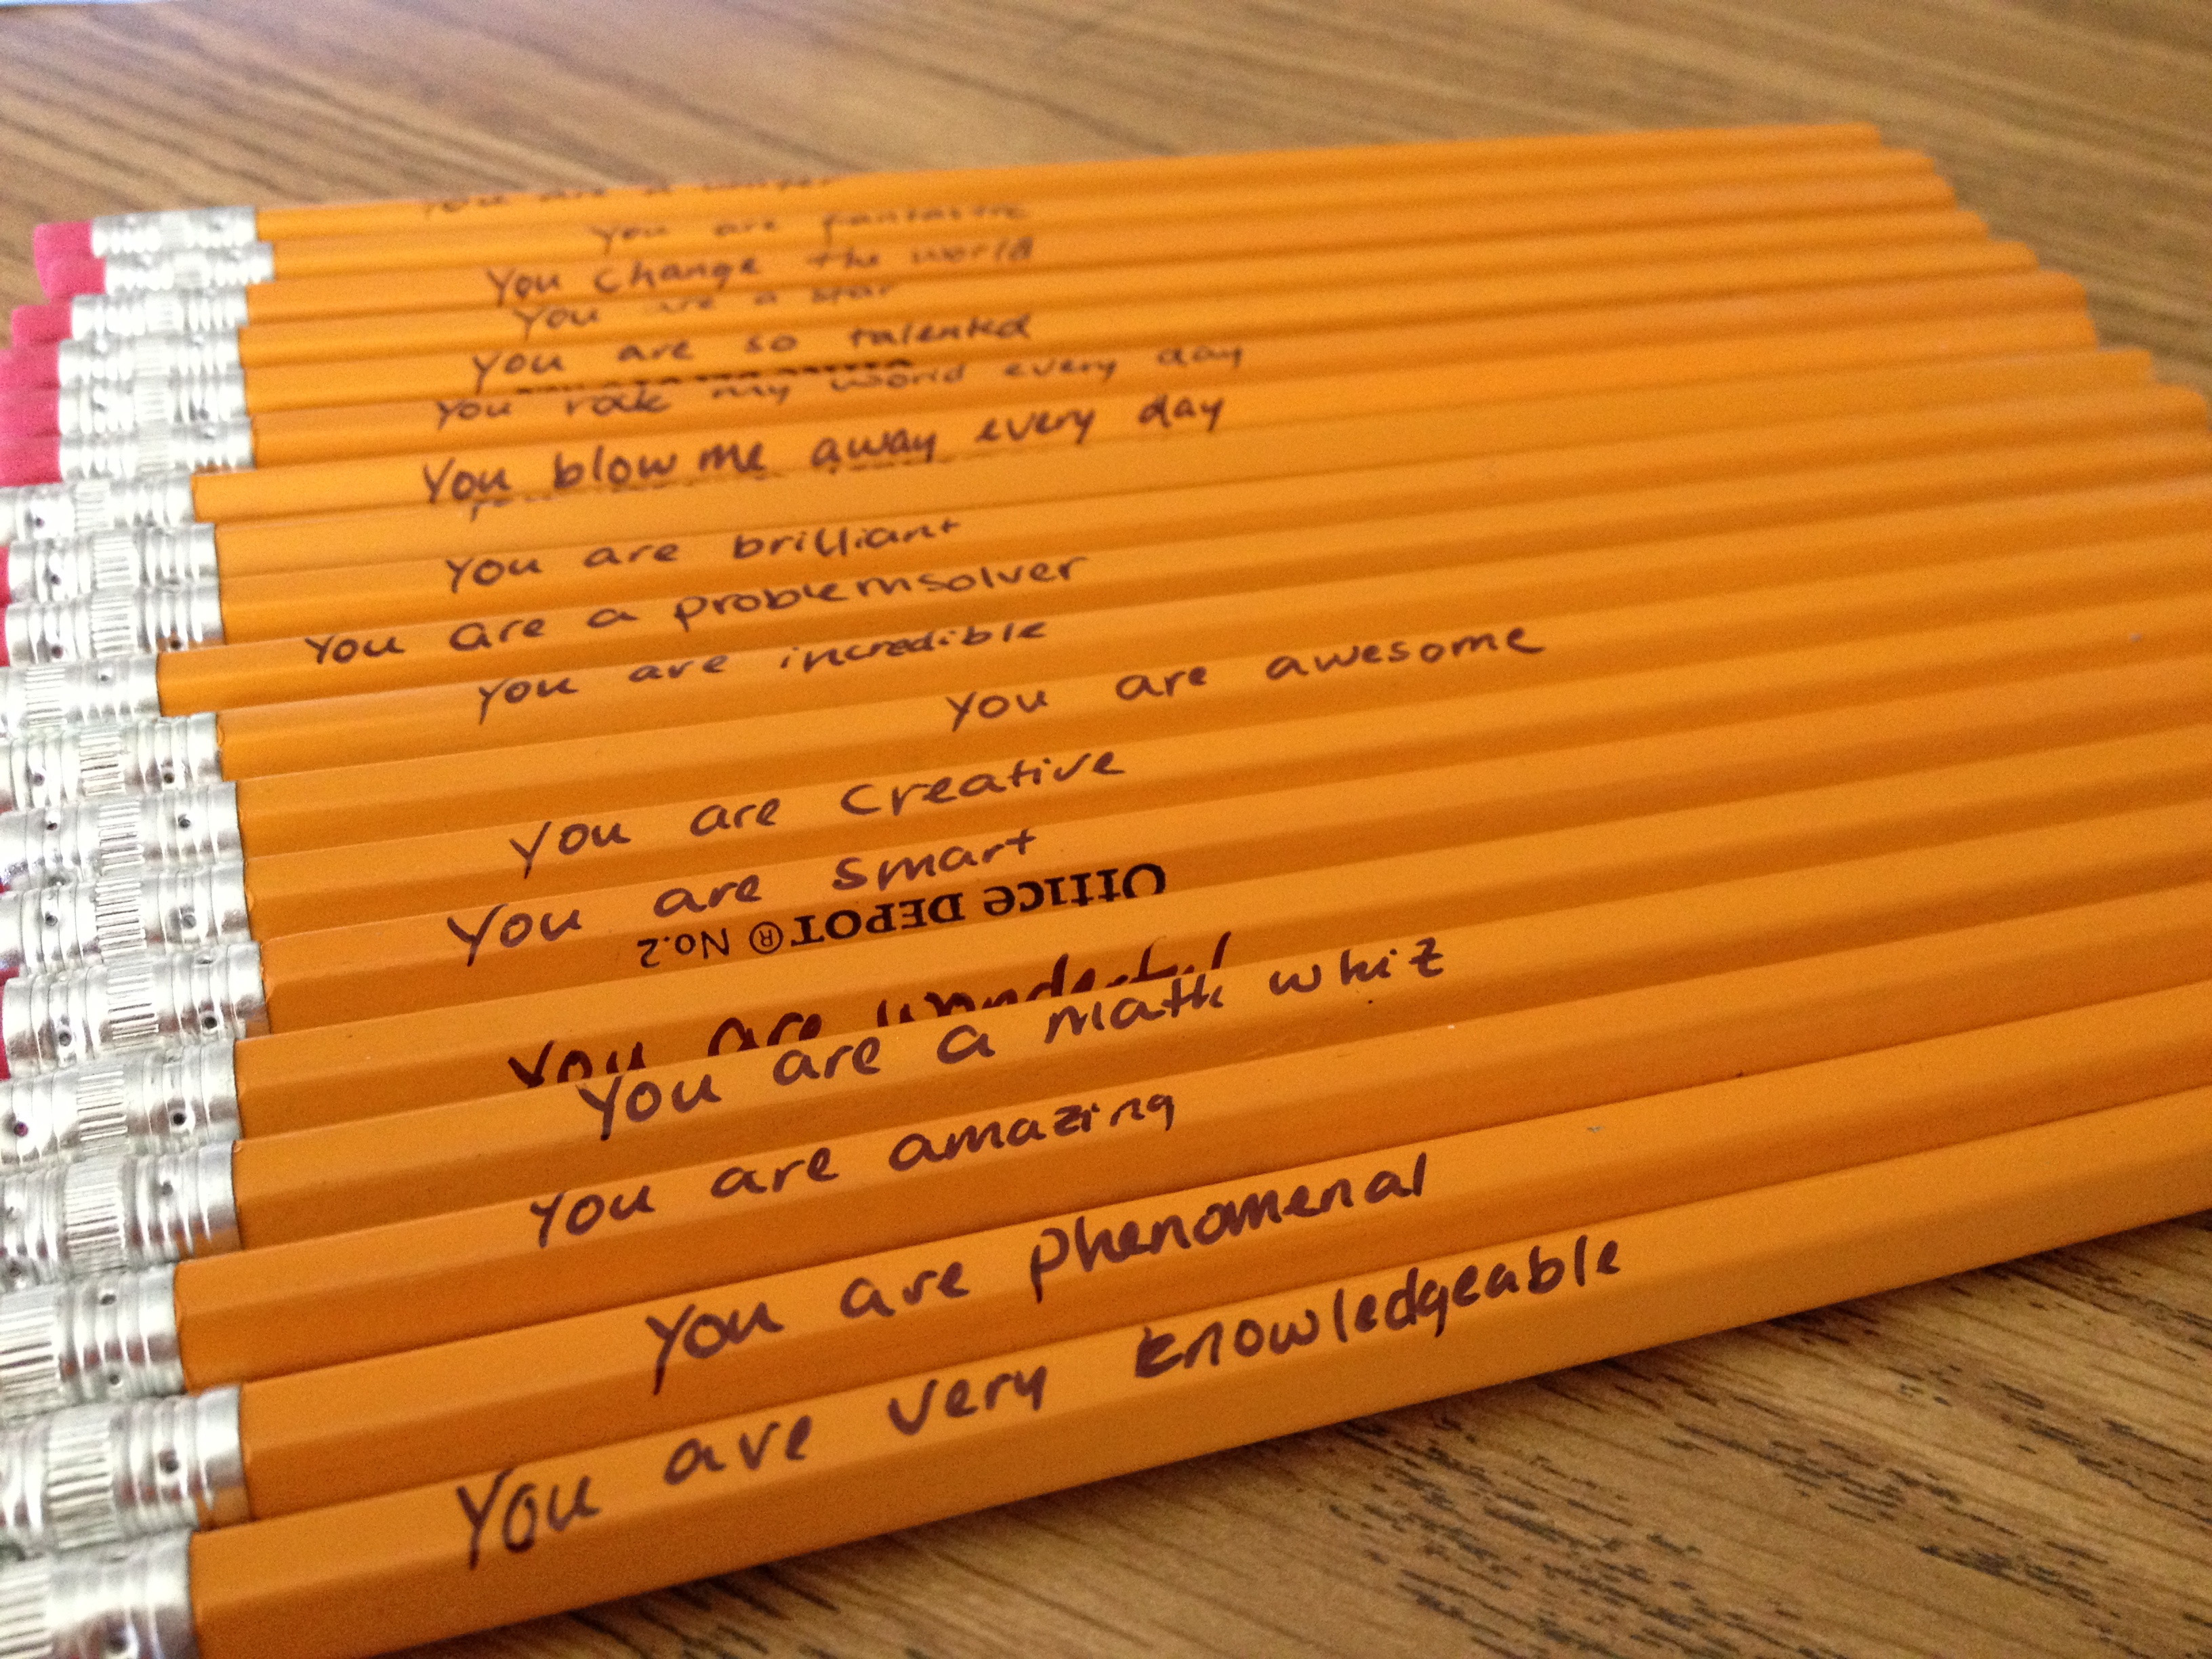 You are a
You are fantastic
You change the world
You are a star
You are so talented
You rock my world every day
You blow me away every day
You are brilliant
You are a problemsolver
You are incredible
You are awesome
You are Creative
You are smart
Office DEPOT® No.2
You are wonderful
You are a math whiz
You are amazing
You are phenomenal
You are very knowledgeable